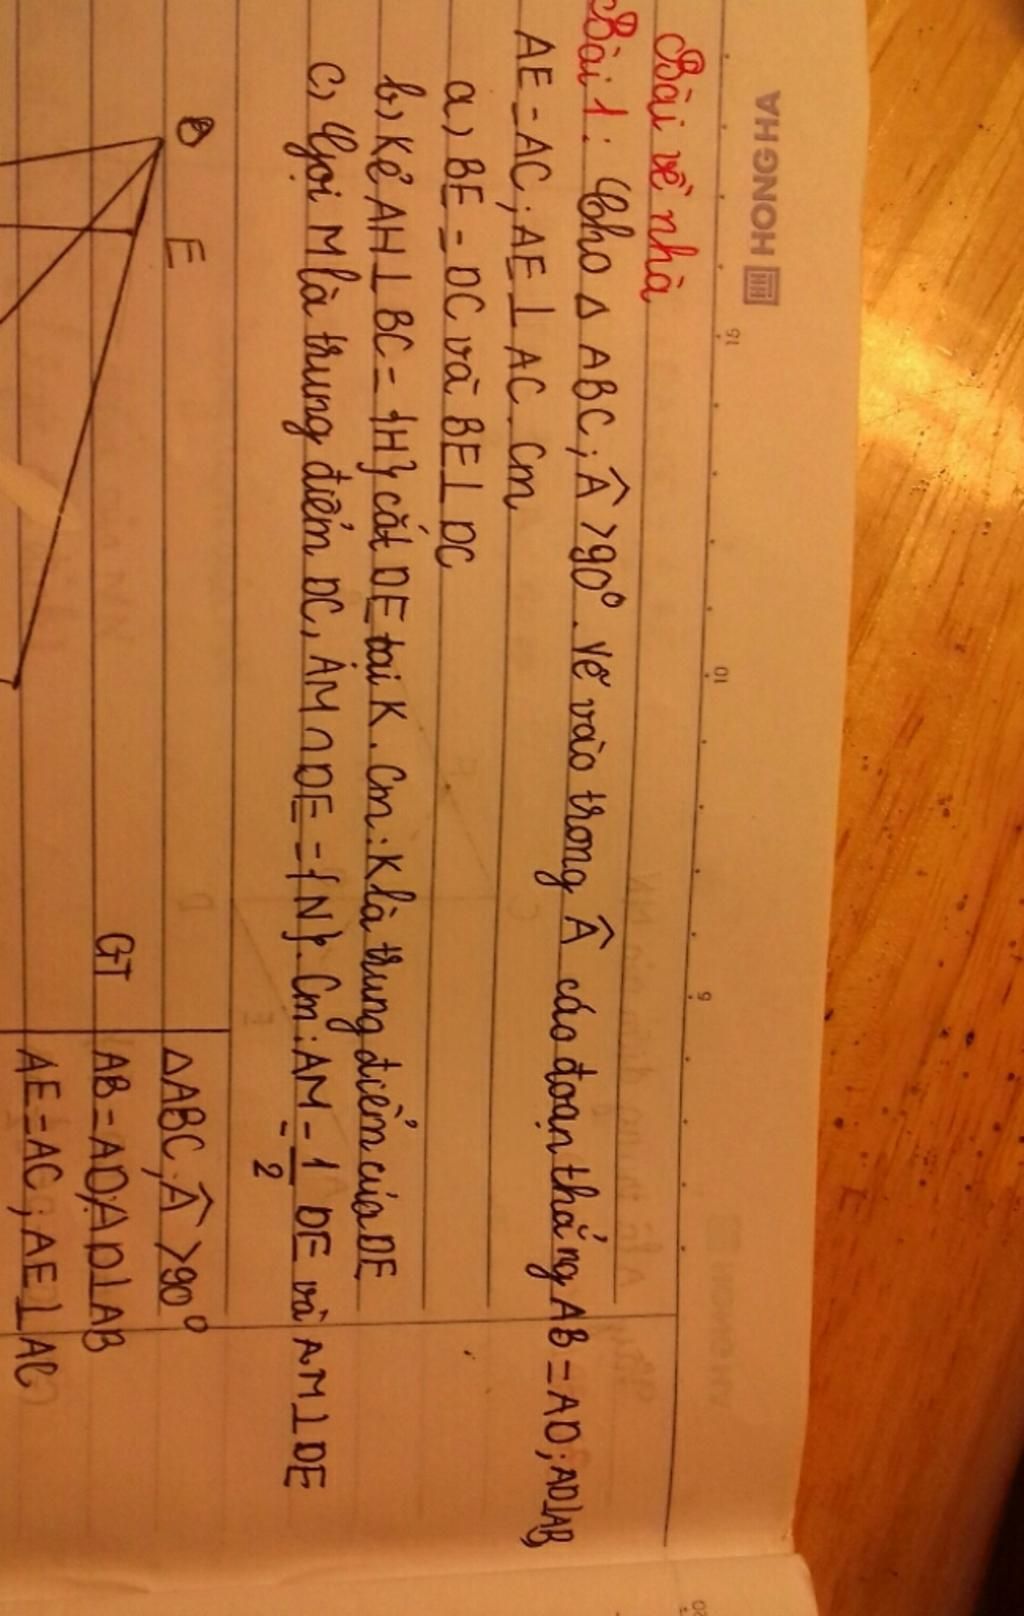 HONG HA
15
10
5
Bài về nhà
Bài 1: Cho △ ABC; Â > 90°. Vẽ vào trong Â các đoạn thẳng AB = AD; AD⊥AB,
AE = AC; AE ⊥ AC. Cm
a) BE = DC và BE ⊥ DC
b) Kẻ AH ⊥ BC = {H} cắt DE tại K. Cm: K là trung điểm của DE
c) Gọi M là trung điểm DC, AM ∩ DE = {N}. Cm: AM = 1/2 DE và AM ⊥ DE
B
E
△ABC, Â > 90°
GT AB = AD; AD⊥AB
AE = AC; AE ⊥ AC